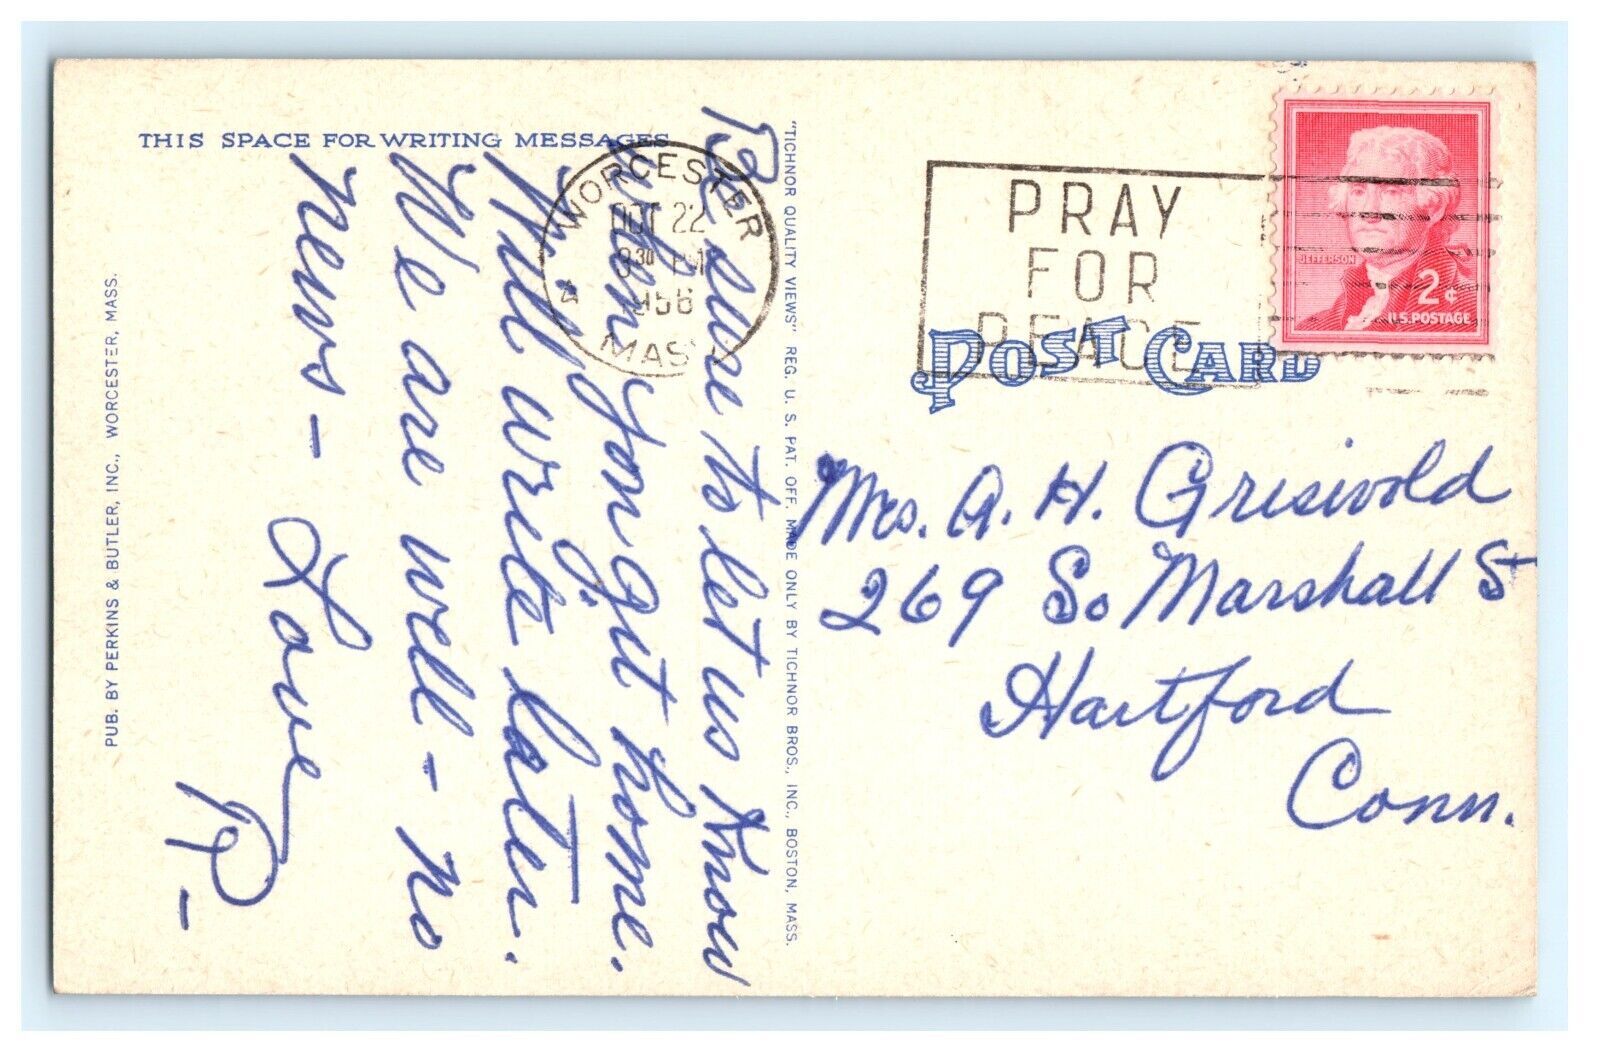 THIS SPACE FOR WRITING MESSAGES
Be sure to let us know
when you git home.
Will write later.
We are well - no
news - Love
P-
PUB. BY PERKINS & BUTLER, INC., WORCESTER, MASS.
"TICHNOR QUALITY VIEWS" REG. U. S. PAT. OFF. MADE ONLY BY TICHNOR BROS., INC., BOSTON, MASS.
WORCESTER
OCT 22
3 30 PM
1956
MASS
PRAY
FOR
PEACE
JEFFERSON
2¢
U.S. POSTAGE
POST CARD
Mrs. A. H. Grisivold
269 So Marshall St
Hartford
Conn.